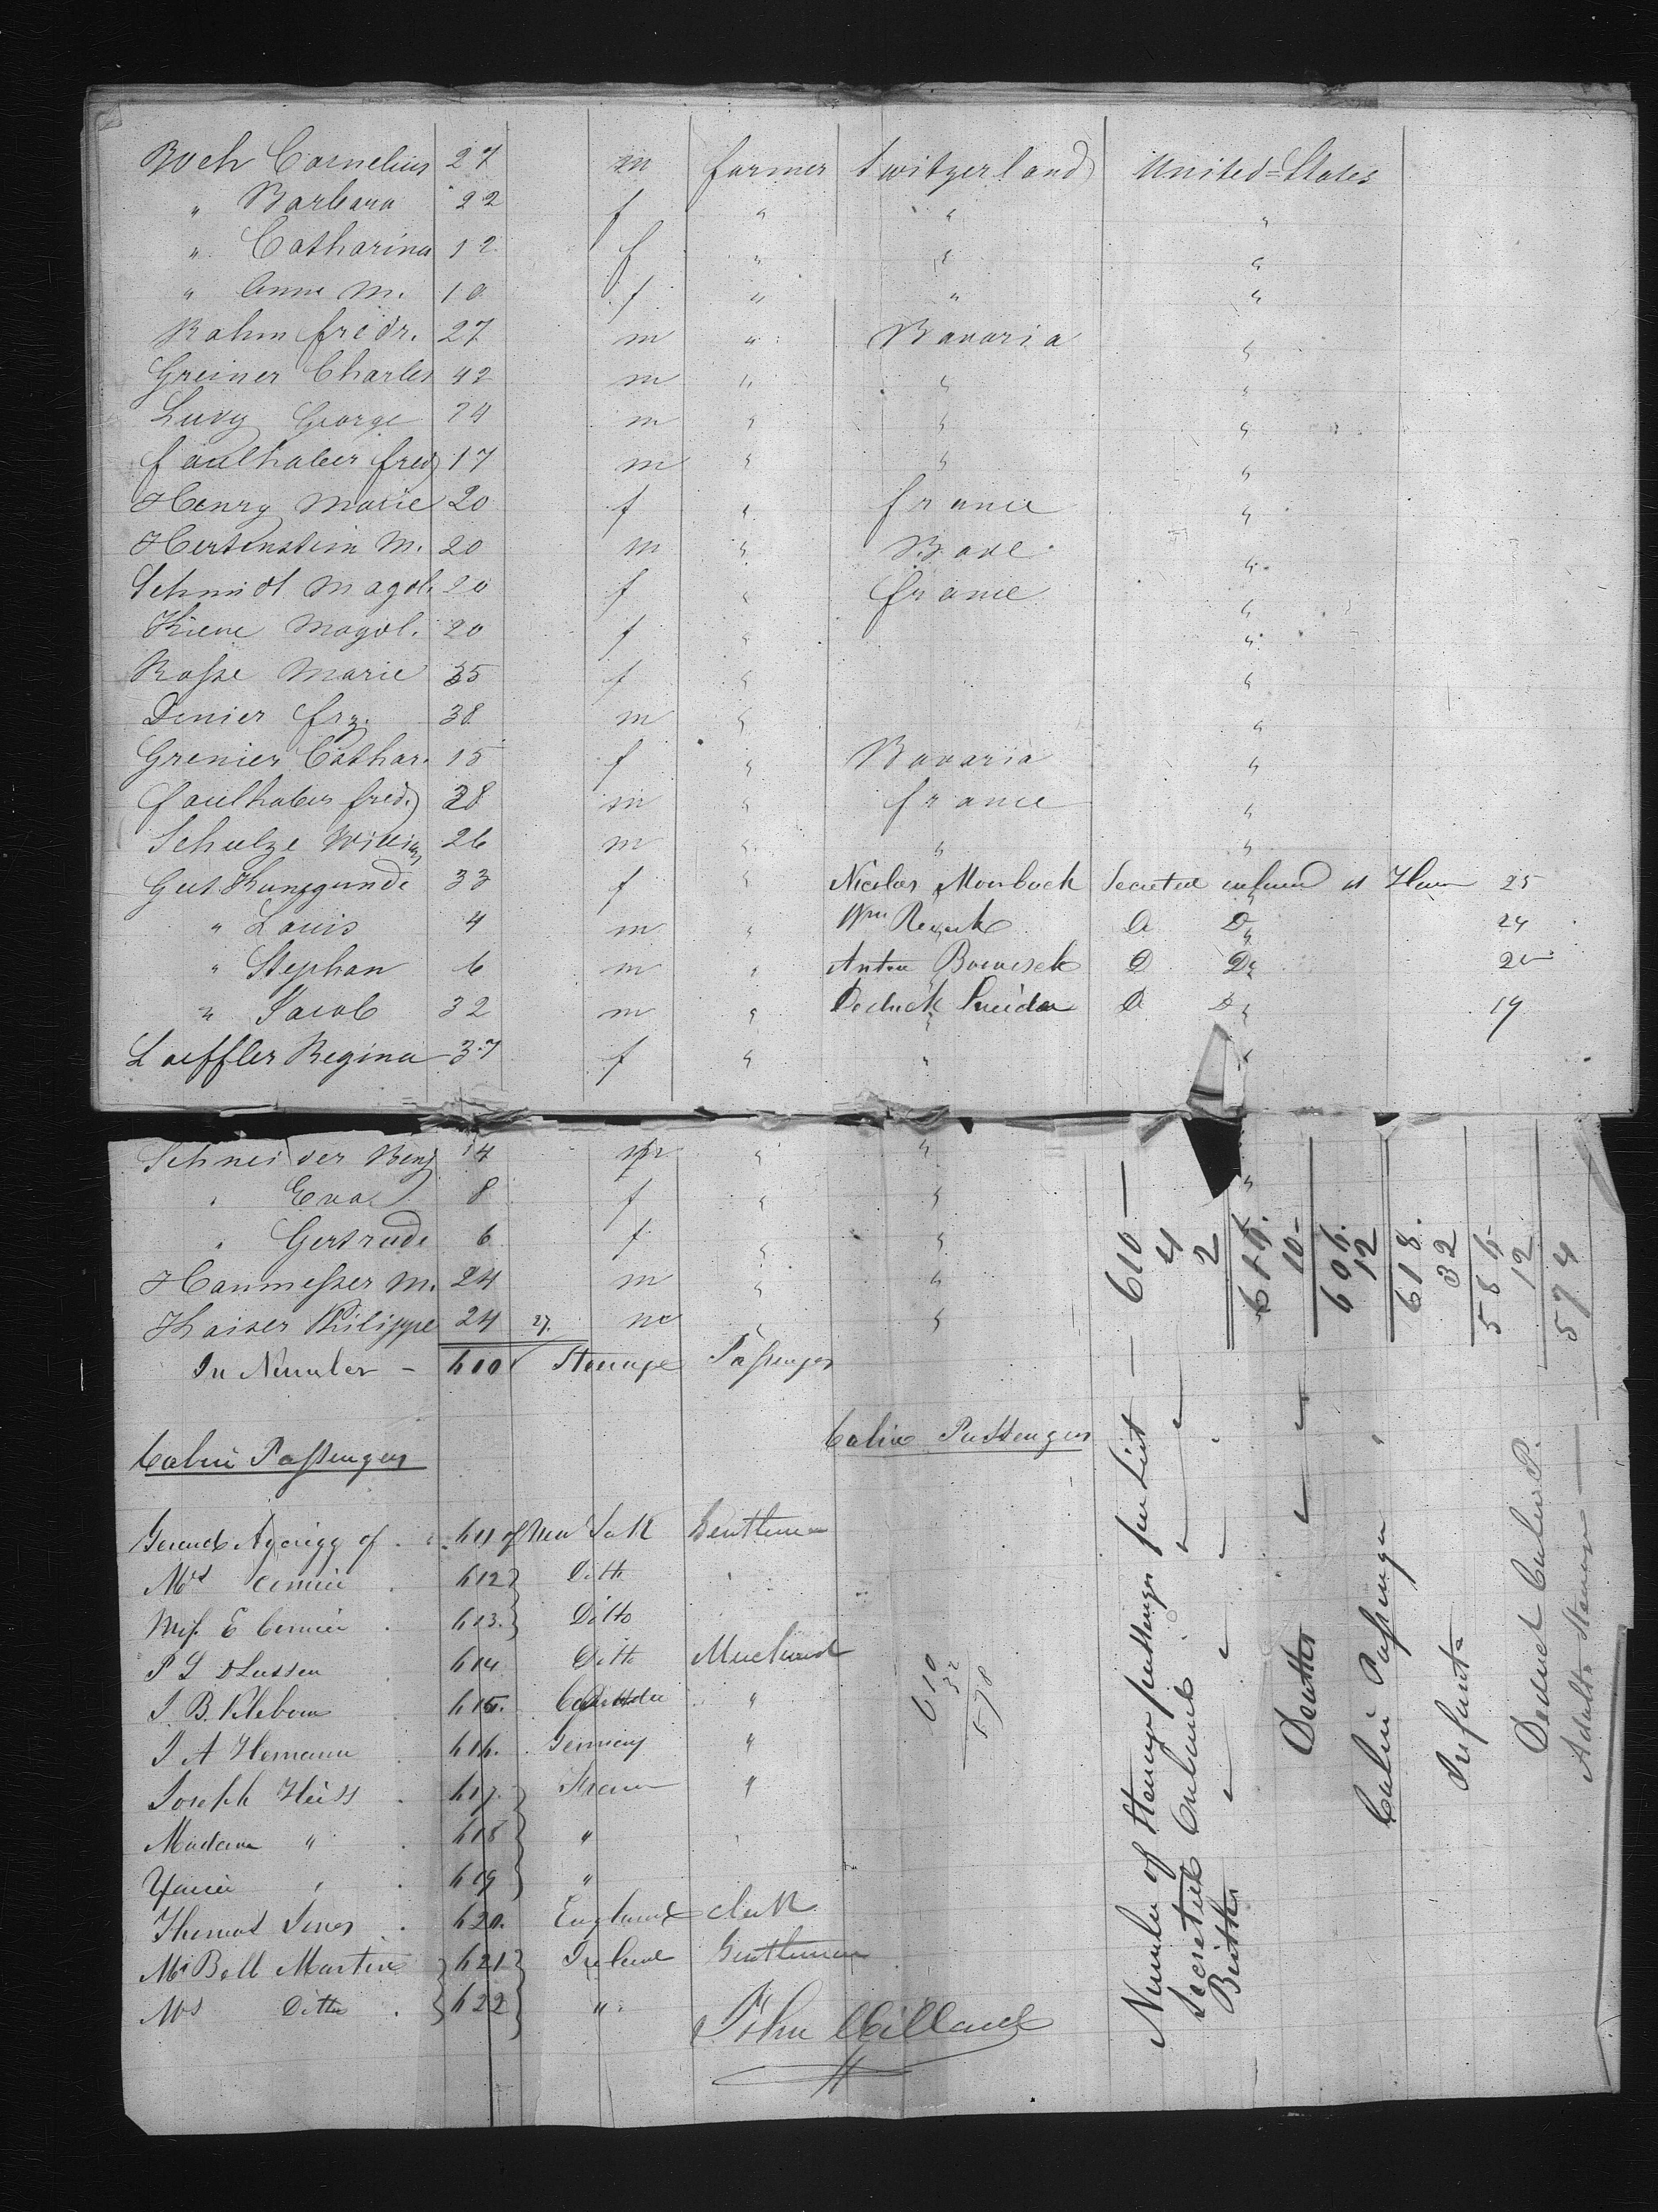 Boch Cornelius 27 m farmer Switzerland United=States
" Barbara 22 f " " "
" Catharina 12 f " " "
" Anna M. 10 f " " "
Rahm fredr. 27 m " Bavaria "
Greiner Charles 42 m " " "
Luvy George 24 m " " "
faulhaber fred 17 m " " "
Henry Marie 20 f " france "
Hertenstein M. 20 m " Bade "
Schmidt Magdl. 20 f " france "
Kiene Magdl. 20 f " "
Rosse Marie 35 f " "
Denier frz. 38 m " "
Grenier Cathar. 15 f " Bavaria "
faulhaber fred. 38 m " france "
Schulze William 26 m " " "
Gut Kunegunde 33 f " Nicolas Morbach Secreted at 25
" Louis 4 m " Wm D D 24
" Stephan 6 m " Anton D D 20
" Jacob 32 m " D D 19
Loeffler Regina 37 f " " "
Schneider Benj 14 m " " "
" Eva 8 f " "
" Gertrude 6 f " "
Hanmesser M. 24 m " "
Kaiser Philippe 24 27. m " "
In Number - 610 Steerage Passengers
Cabin Passengers
Cabin Passengers
611 of New York Gentleman
Mrs 612 Ditto
Miss E 613. Ditto
P L 614 Ditto Merchant
J. B. 615. "
J A Hemann 616. Germany "
Joseph Heiss 617. "
Madam " 618 "
" 619 "
Thomas Jones 620. England clerk
Mr Bell Martin 621 Ireland Gentleman
Mrs Ditto 622 "
John Willard
610
32
578
Number of Steerage passengers per List — 610 —
Secreted Onboard " " 4
Births " " " 2
616.
Deaths " " 10-
606.
Cabin Passengers " 12
618.
Infants 32
586
Deduct Cabin P. 12
574